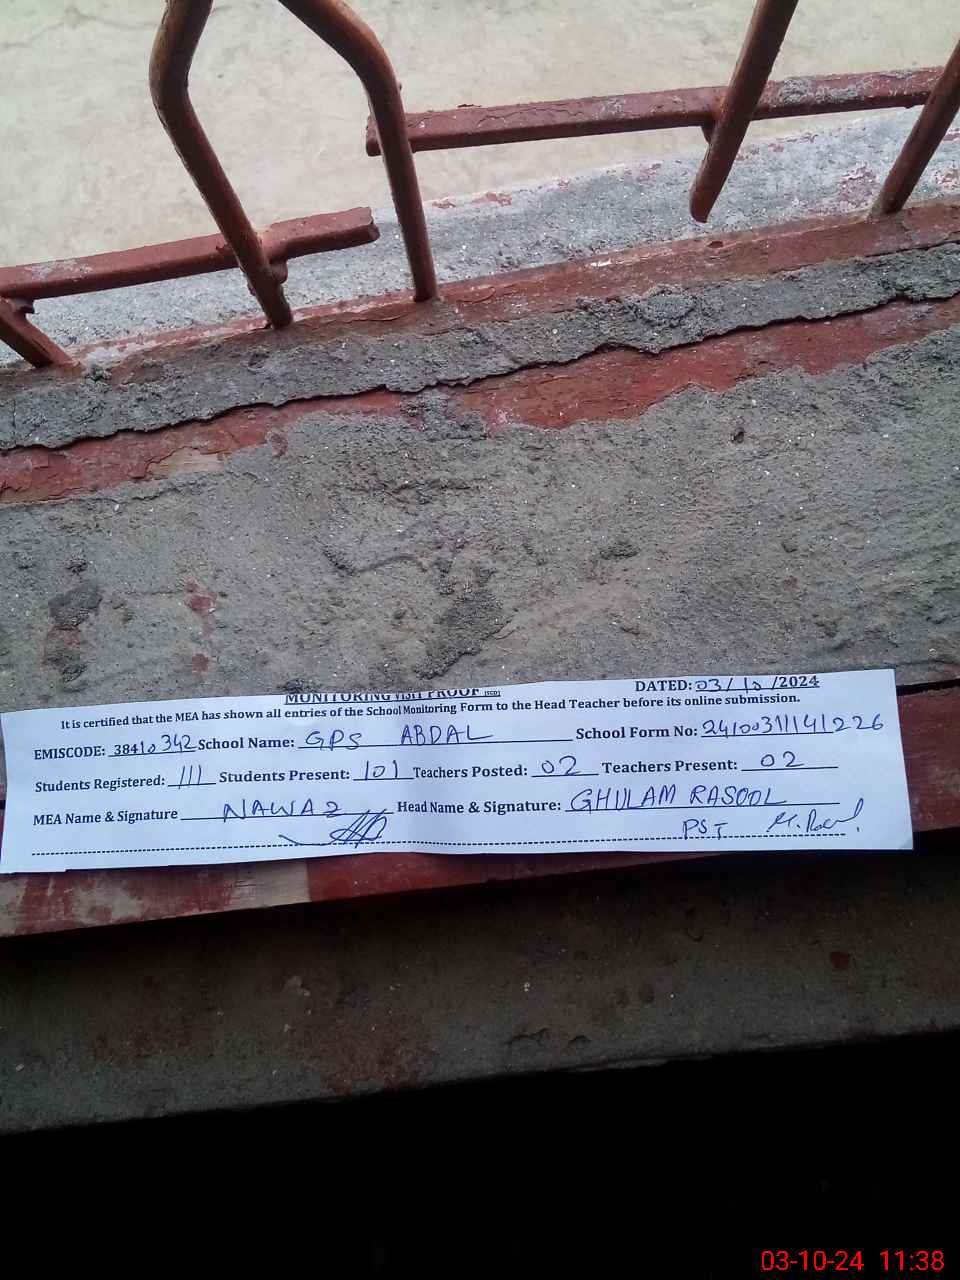 MONITORING VISIT PROOF (SGD)
DATED: 03/10/2024
It is certified that the MEA has shown all entries of the School Monitoring Form to the Head Teacher before its online submission.
EMISCODE: 38410342 School Name: GPS ABDAL School Form No: 24100311141226
Students Registered: 111 Students Present: 101 Teachers Posted: 02 Teachers Present: 02
MEA Name & Signature NAWAZ Head Name & Signature: GHULAM RASOOL
PST
03-10-24 11:38